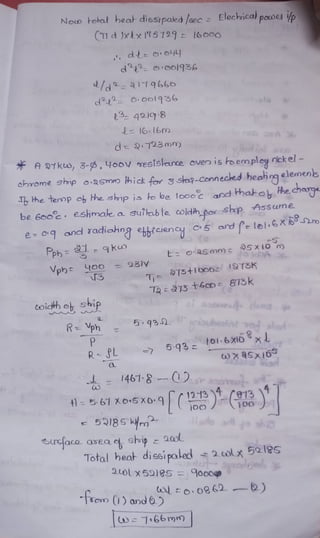 Now total heat dissipated/sec = Electrical power i/p
(π d)xl x 175729 = 16000
∴ dl = 0.044
d²l² = 0.001936
l/d² = 2179660
d²l² = 0.001936
l³ = 4219.8
l = 16.16m
d = 2.723mm
* A 27kw, 3-φ, 400V resistance oven is to employ nickel-
chrome strip 0.25mm thick for 3 star-connected heating elements
If the temp of the strip is to be 1000°c and that of the charge
be 600°c. estimate a suitable width for strip. Assume
e = 0.9 and radiating efficiency 0.5 and ρ = 101.6x10⁻⁸ Ωm
Pph = 27/3 = 9kw t = 0.25mm = 25x10⁻⁵m
Vph = 400/√3 = 231V T₁ = 273+1000 = 1273K
T₂ = 273+600 = 873K
width of strip
R = Vph²/P = 5.93Ω
R = ρL/a ⇒ 5.93 = 101.6x10⁻⁸ x l / w x 25x10⁻⁵
l/w = 1467.8 — (1)
H = 5.67 x 0.5 x 0.9 [(1273/100)⁴ - (873/100)⁴]
= 52185 W/m²
surface area of strip = 2wl
Total heat dissipated = 2wl x 52185
2wl x 52185 = 9000
wl = 0.0862 — (2)
from (1) and (2)
w = 7.66mm